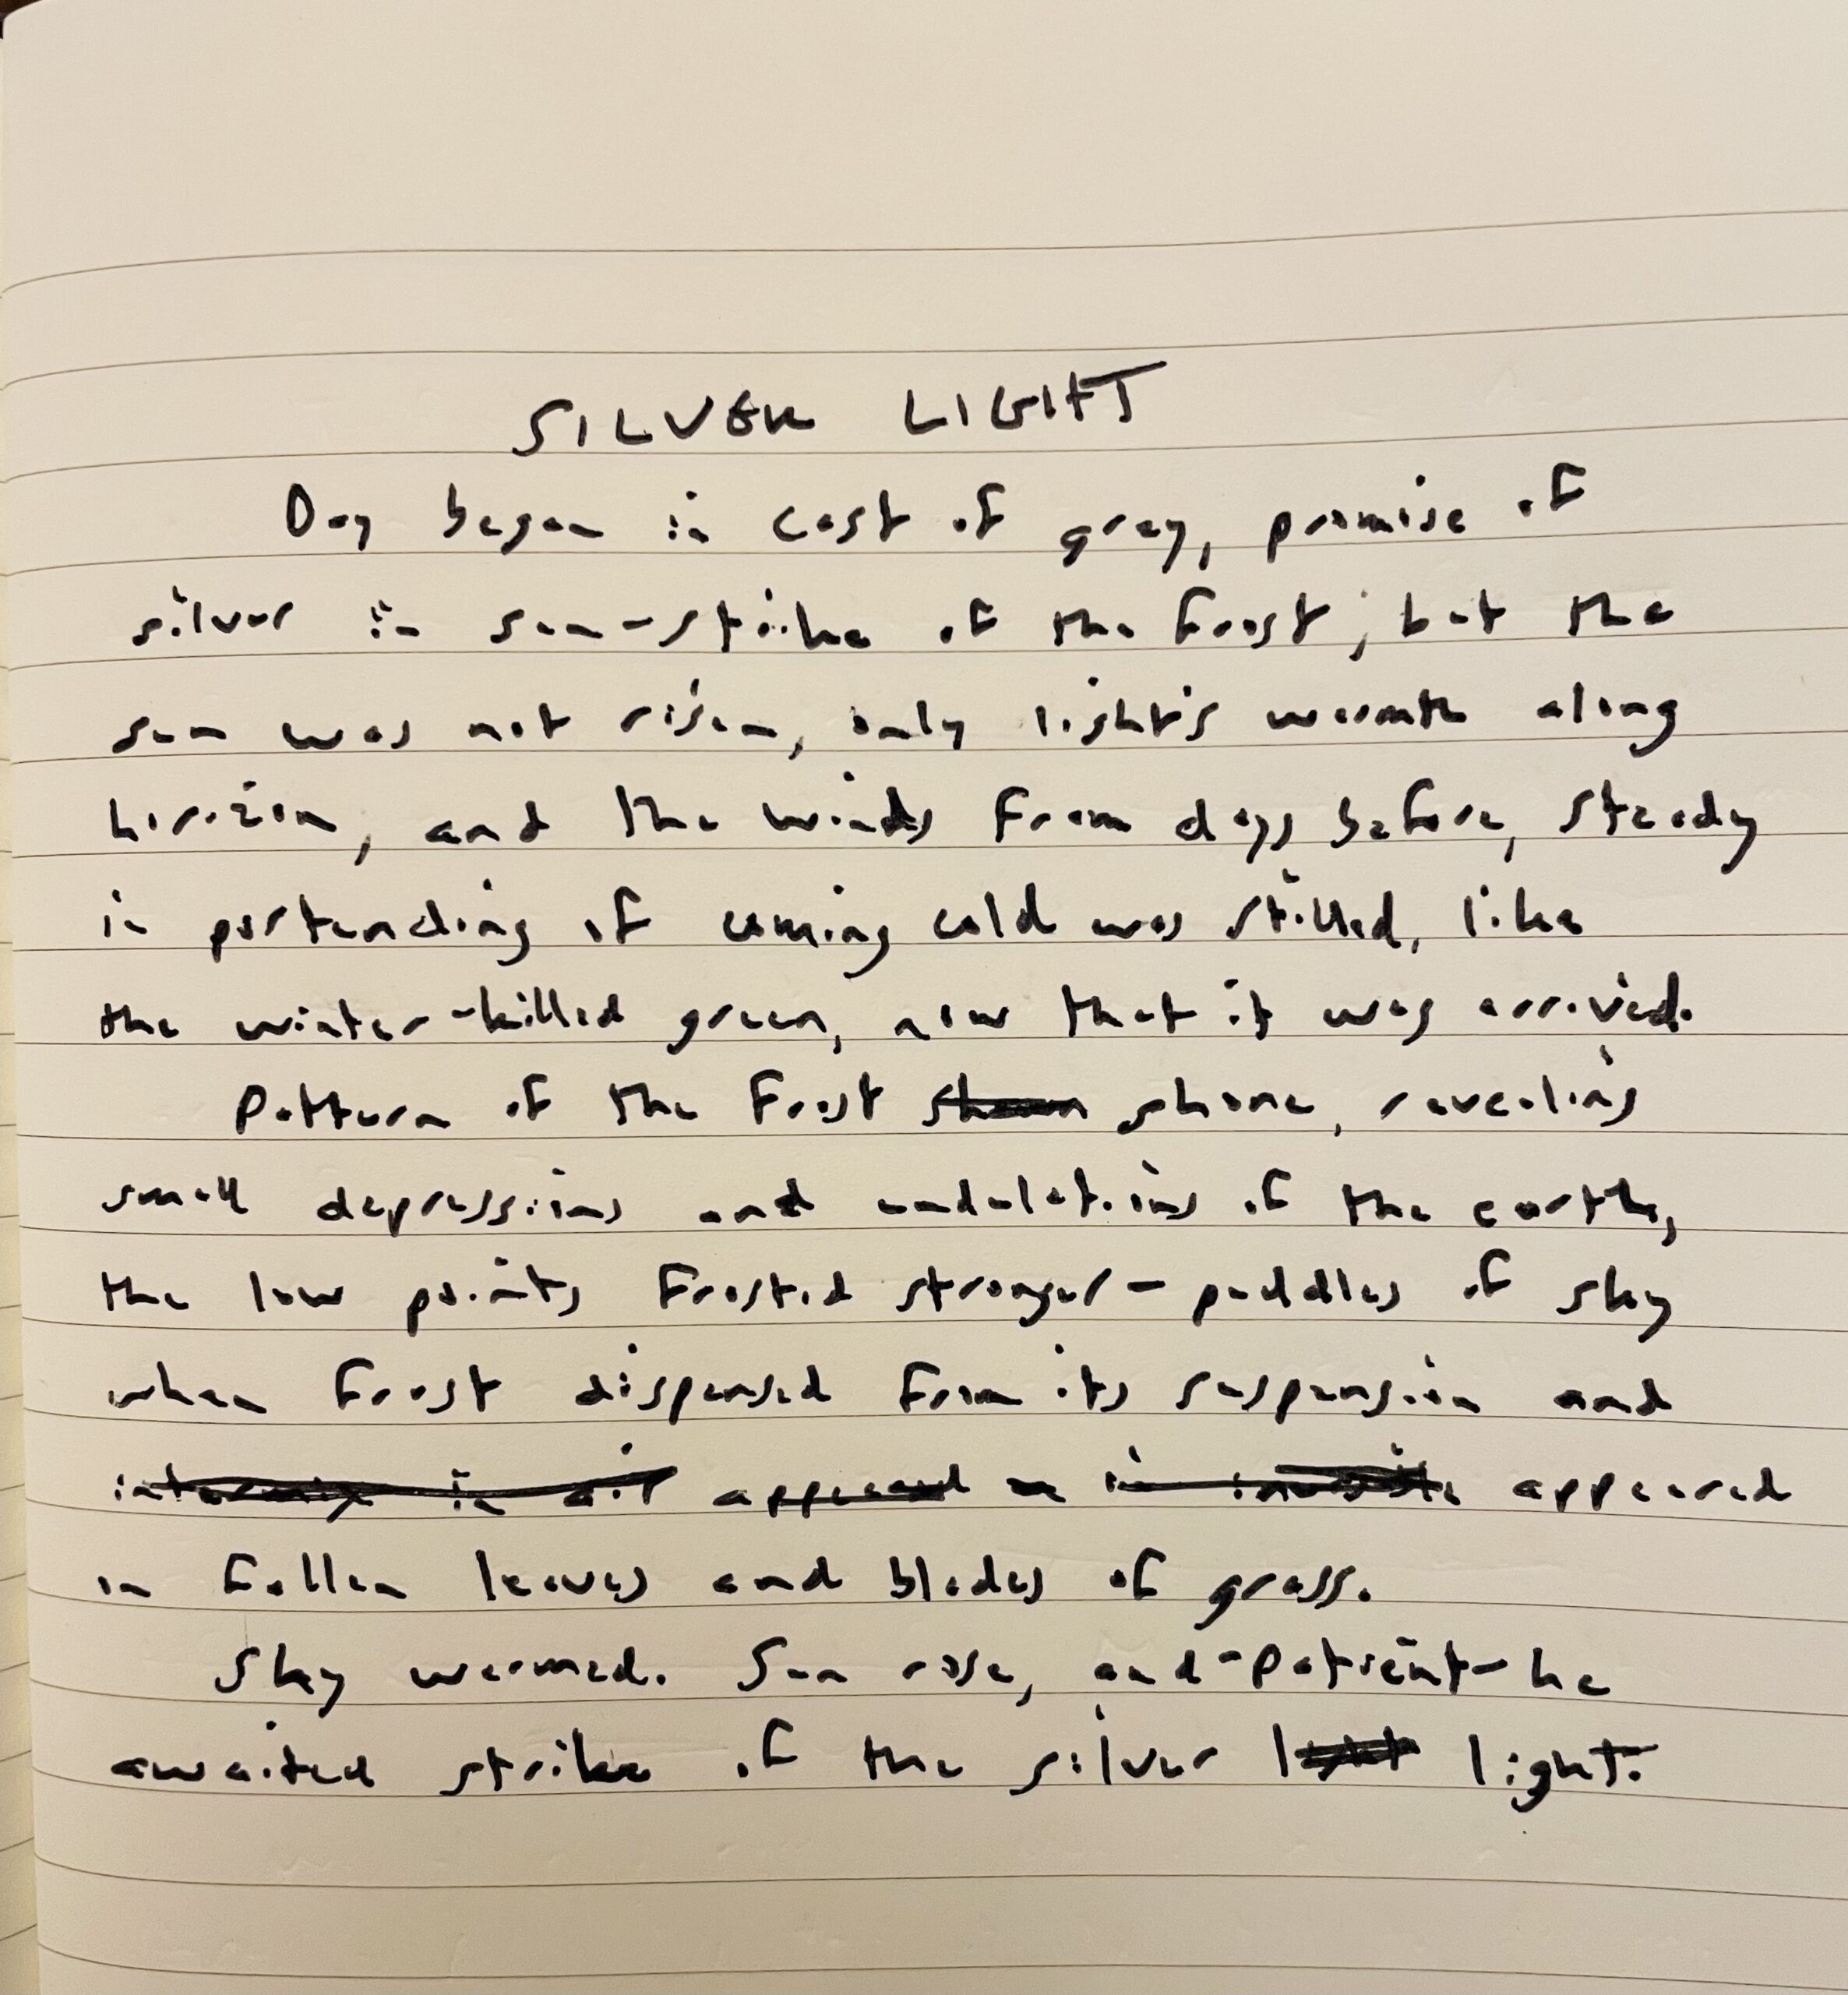 SILVER LIGHT
Day began in cast of gray, promise of
silver in sun-strike of the frost; but the
sun was not risen, only light's warmth along
horizon, and the winds from days before, steady
in portending of coming cold was stilled, like
the winter-killed green, now that it was arrived.
Pattern of the frost shone, revealing
small depressions and undulations of the earth,
the low points frosted stronger - puddles of sky
when frost dispensed from its suspension and
appeared
on fallen leaves and blades of grass.
Sky warmed. Sun rose, and-patient-he
awaited strike of the silver light.